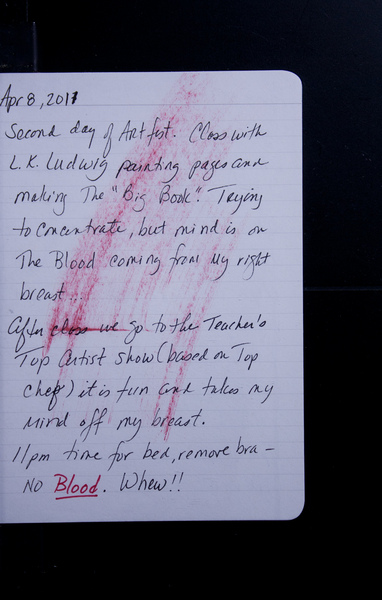 Apr 8, 2011
Second day of Artfest. Class with
L.K. Ludwig painting pages and
making The "Big Book". Trying
to concentrate, but mind is on
The Blood coming from my right
breast...
After class we go to the Teacher's
Top Artist Show (based on Top
Chef) it is fun and takes my
mind off my breast.
11pm time for bed, remove bra –
NO Blood. Whew!!